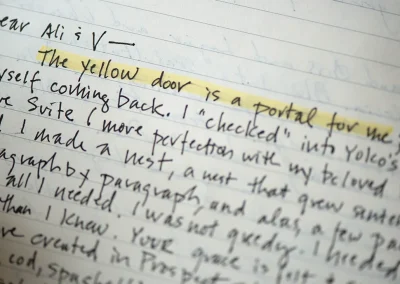 ear Ali & V—
The yellow door is a portal for me,
yself coming back. I "checked" into Yolco's
e Suite (more perfection with my beloved
I made a nest, a nest that grew senten
agraph by paragraph, and alas, a few pa
all I needed. I was not greedy. I needed
than I knew. Your grace is felt
ve created in Prospect
cod, spaghet